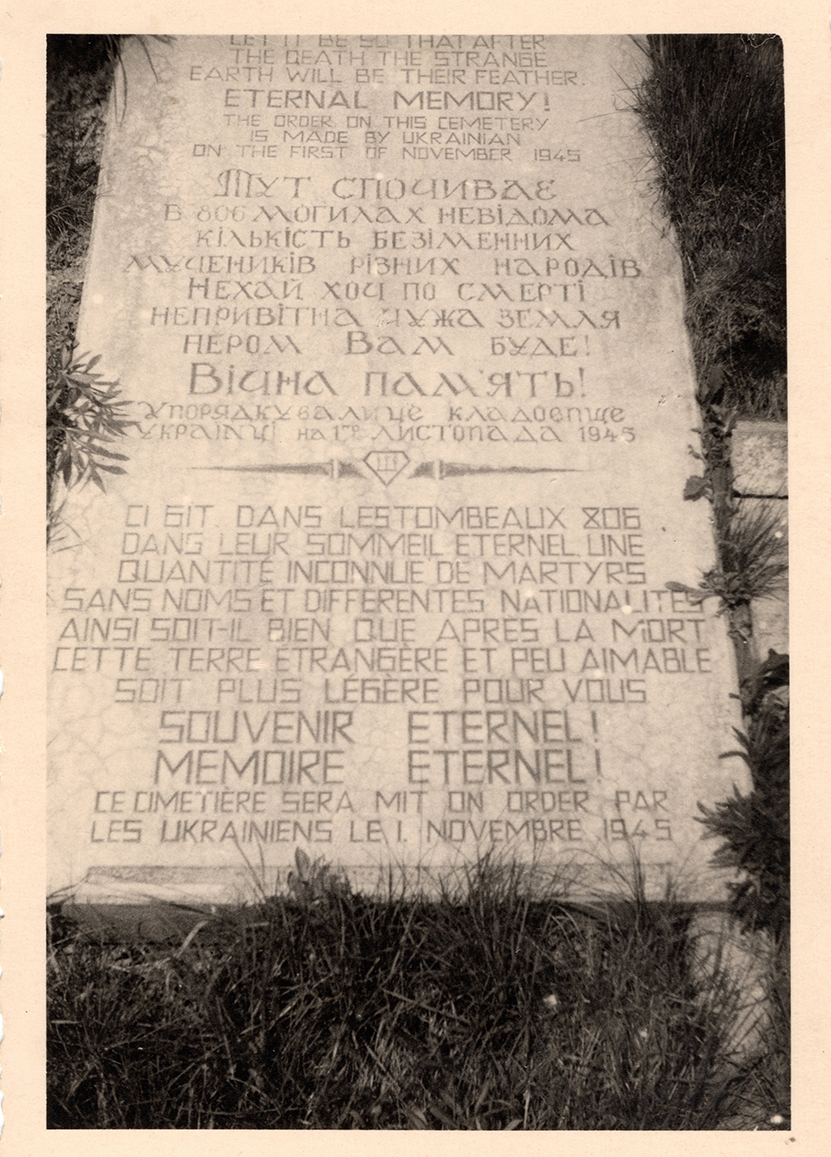 LET IT BE SO THAT AFTER
THE DEATH THE STRANGE
EARTH WILL BE THEIR FEATHER.
ETERNAL MEMORY!
THE ORDER ON THIS CEMETERY
IS MADE BY UKRAINIAN
ON THE FIRST OF NOVEMBER 1945
ТУТ СПОЧИВАЄ
В 806 МОГИЛАХ НЕВІДОМА
КІЛЬКІСТЬ БЕЗІМЕННИХ
МУЧЕНИКІВ РІЗНИХ НАРОДІВ
НЕХАЙ ХОЧ ПО СМЕРТІ
НЕПРИВІТНА ЧУЖА ЗЕМЛЯ
ПЕРОМ ВАМ БУДЕ!
ВІЧНА ПАМ'ЯТЬ!
УПОРЯДКУВАЛИ ЦЕ КЛАДОВИЩЕ
УКРАЇНЦІ НА 1ГО ЛИСТОПАДА 1945
Ш
CI GIT. DANS LESTOMBEAUX 806
DANS LEUR SOMMEIL ETERNEL UNE
QUANTITÉ INCONNUE DE MARTYRS
SANS NOMS ET DIFFERENTES NATIONALITÉS
AINSI SOIT-IL BIEN QUE APRES LA MORT
CETTE TERRE ETRANGÈRE ET PEU AIMABLE
SOIT PLUS LÉGÈRE POUR VOUS
SOUVENIR ETERNEL!
MEMOIRE ETERNEL!
CE CIMETIÈRE SERA MIT ON ORDER PAR
LES UKRAINIENS LE 1. NOVEMBRE 1945